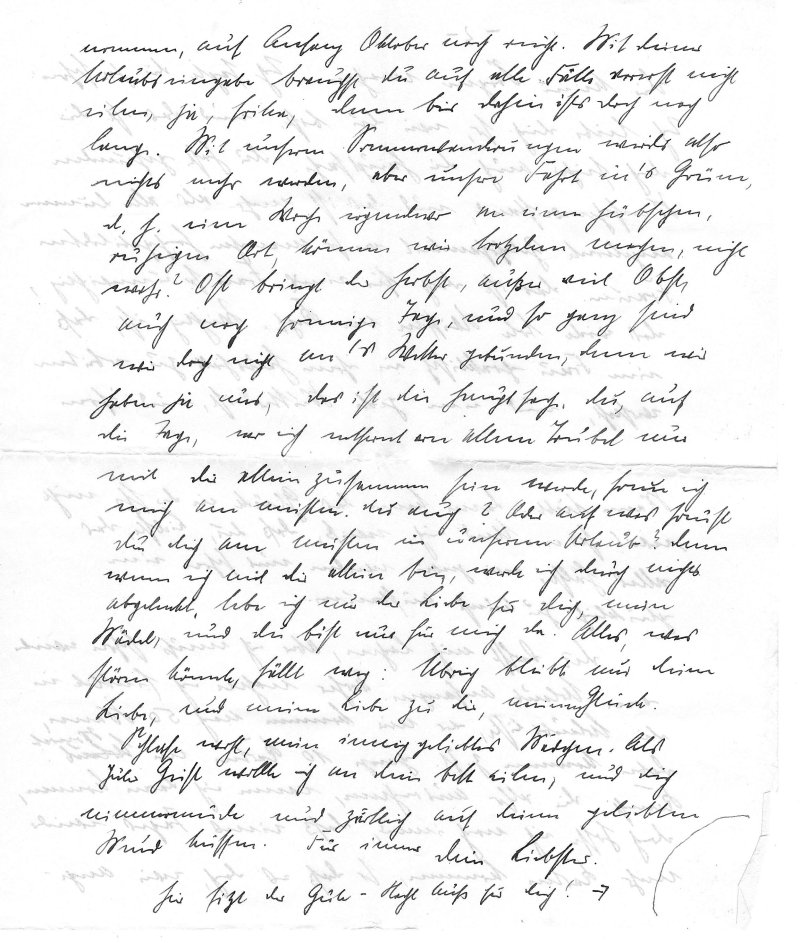 nommen, auf Anfang Oktober noch nicht. Mit deiner
Urlaubseingabe brauchst du auf alle Fälle vorerst nicht
eilen, ja, denn bis dahin ist's doch noch
lange. Mit unseren Sommerwanderungen wird's also
nichts mehr werden, aber unsere Fahrt in's Grüne,
d. h. eine Woche irgendwo an einem hübschen,
ruhigen Ort, können wir trotzdem machen, nicht
wahr? Oft bringt der Herbst, außer viel Obst,
auch noch sonnige Tage, und so ganz sind
wir doch nicht an's Wetter gebunden, denn wir
haben ja uns, das ist die Hauptsache. auf
die Tage, wo ich entfernt von allem Trubel nur
mit dir allein zusammen sein werde, freue ich
mich am meisten. du auch? Oder auf was freust
du dich am meisten in unserem Urlaub? denn
wenn ich mit dir allein bin, werde ich durch nichts
abgelenkt, lebe ich nur der Liebe für dich, mein
Mädel, und du bist nur für mich da. Alles, was
stören könnte, fällt weg: Übrig bleibt nur deine
Liebe, und meine Liebe zu dir, meinem Glück.
Schlafe wohl, mein innig geliebtes Mädchen. Als
guter Geist wollte ich an dein Bett eilen, und dich
nimmermüde und zärtlich auf deinen geliebten
Mund küssen. Für immer dein Liebster.
hier sitzt der Gute-Nacht Kuß für dich! →